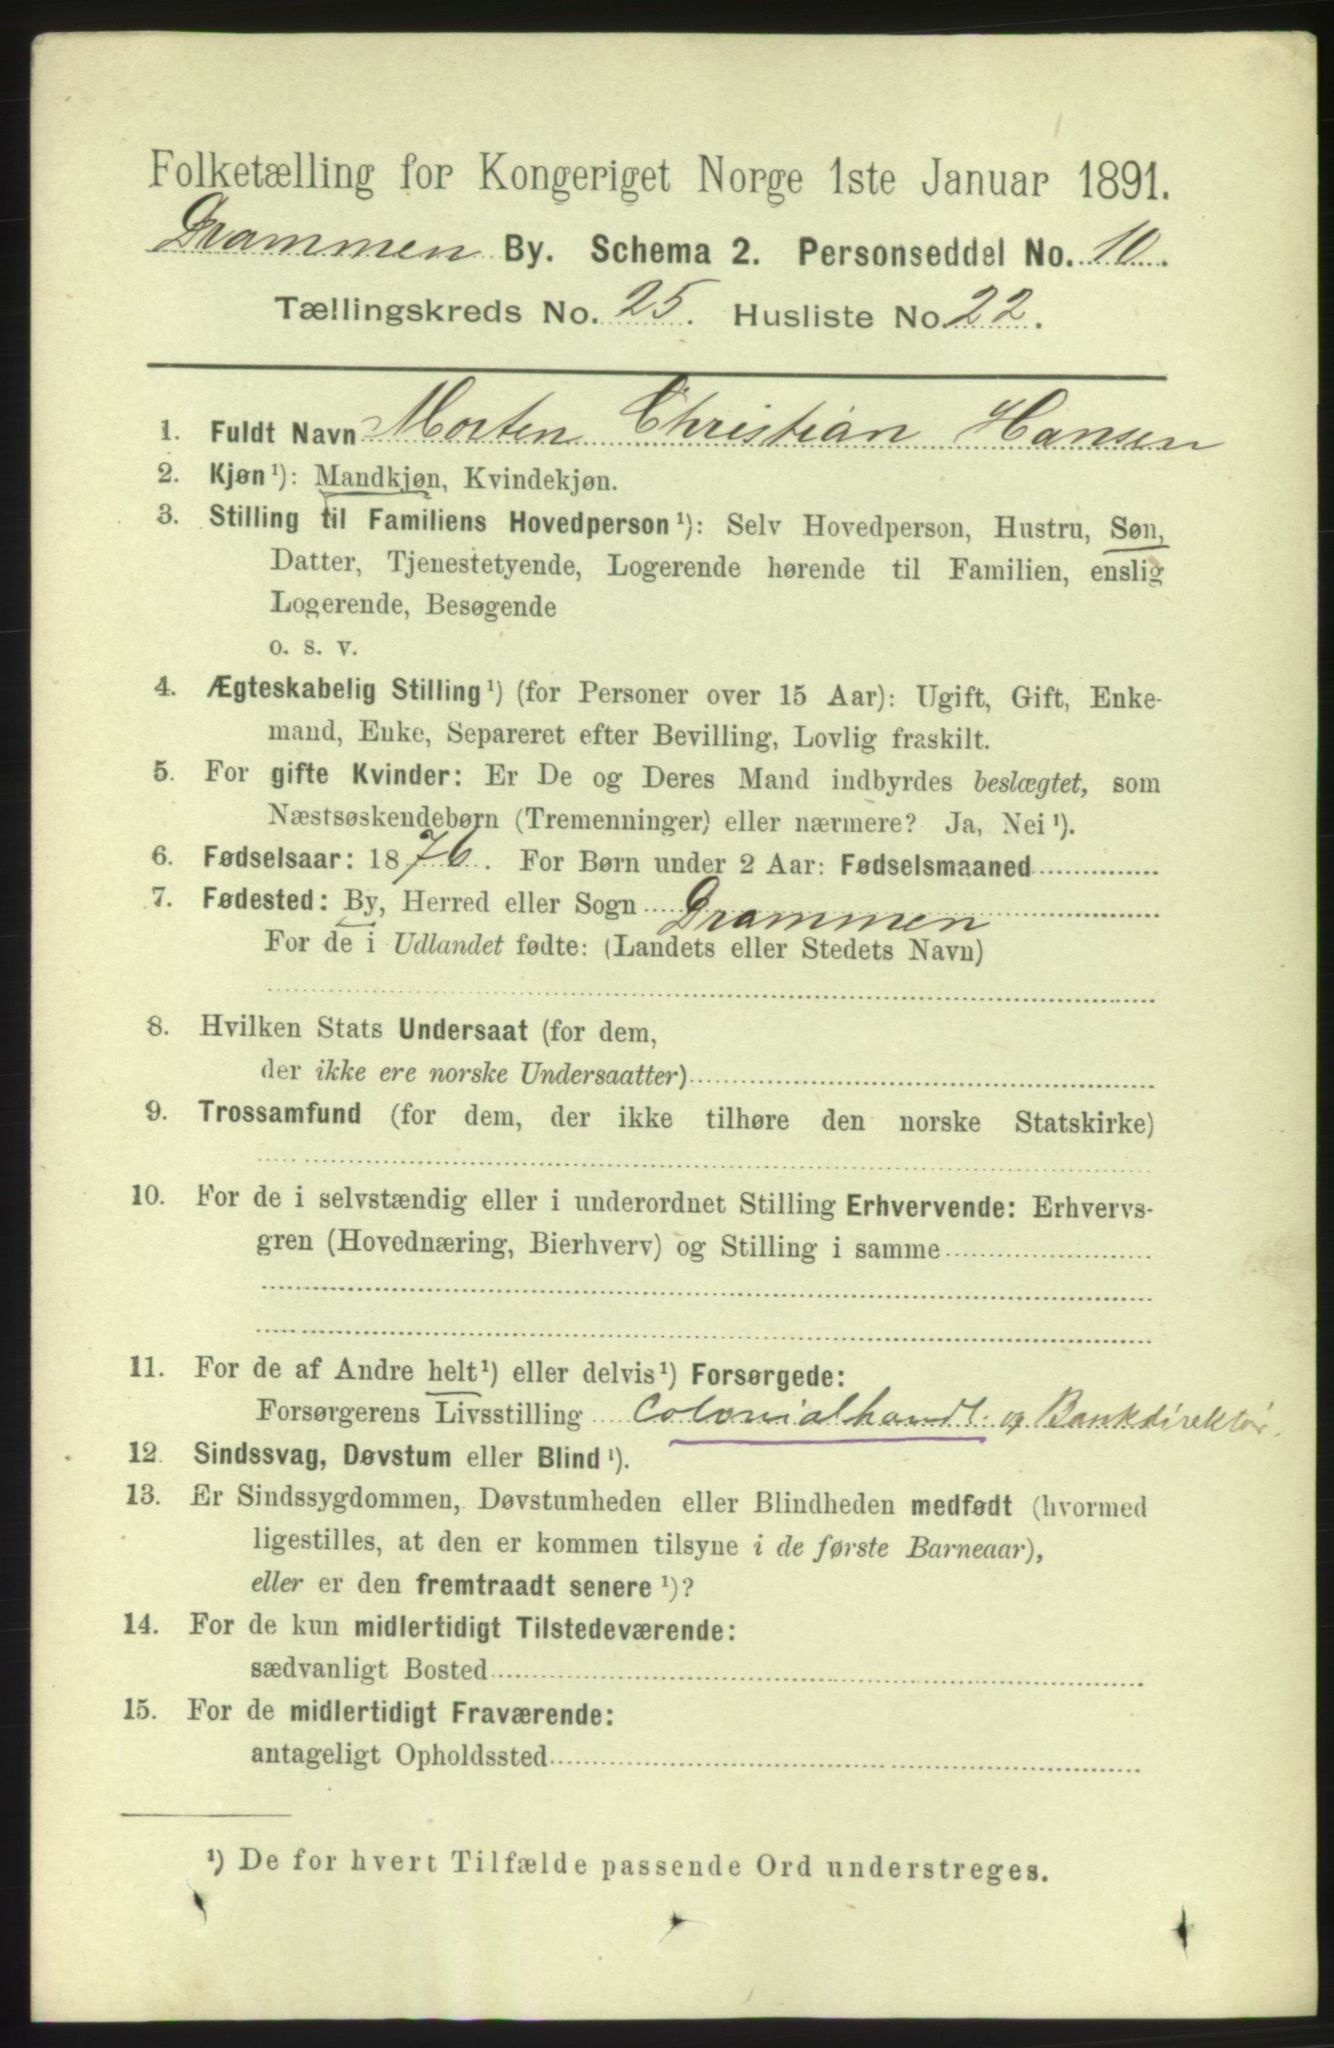 Folketælling for Kongeriget Norge 1ste Januar 1891.
Drammen By. Schema 2. Personseddel No. 10.
Tællingskreds No. 25. Husliste No. 22.
1. Fuldt Navn Morten Christian Hansen
2. Kjøn¹): Mandkjøn, Kvindekjøn.
3. Stilling til Familiens Hovedperson¹): Selv Hovedperson, Hustru, Søn,
Datter, Tjenestetyende, Logerende hørende til Familien, enslig
Logerende, Besøgende
o. s. v.
4. Ægteskabelig Stilling¹) (for Personer over 15 Aar): Ugift, Gift, Enke-
mand, Enke, Separeret efter Bevilling, Lovlig fraskilt.
5. For gifte Kvinder: Er De og Deres Mand indbyrdes beslægtet, som
Næstsøskendebørn (Tremenninger) eller nærmere? Ja, Nei¹).
6. Fødselsaar: 1876. For Børn under 2 Aar: Fødselsmaaned
7. Fødested: By, Herred eller Sogn Drammen
For de i Udlandet fødte: (Landets eller Stedets Navn)
8. Hvilken Stats Undersaat (for dem,
der ikke ere norske Undersaatter)
9. Trossamfund (for dem, der ikke tilhøre den norske Statskirke)
10. For de i selvstændig eller i underordnet Stilling Erhvervende: Erhvervs-
gren (Hovednæring, Bierhverv) og Stilling i samme
11. For de af Andre helt¹) eller delvis¹) Forsørgede:
Forsørgerens Livsstilling Colonialhandl. og Bankdirektør.
12. Sindssvag, Døvstum eller Blind¹).
13. Er Sindssygdommen, Døvstumheden eller Blindheden medfødt (hvormed
ligestilles, at den er kommen tilsyne i de første Barneaar),
eller er den fremtraadt senere¹)?
14. For de kun midlertidigt Tilstedeværende:
sædvanligt Bosted
15. For de midlertidigt Fraværende:
antageligt Opholdssted
¹) De for hvert Tilfælde passende Ord understreges.